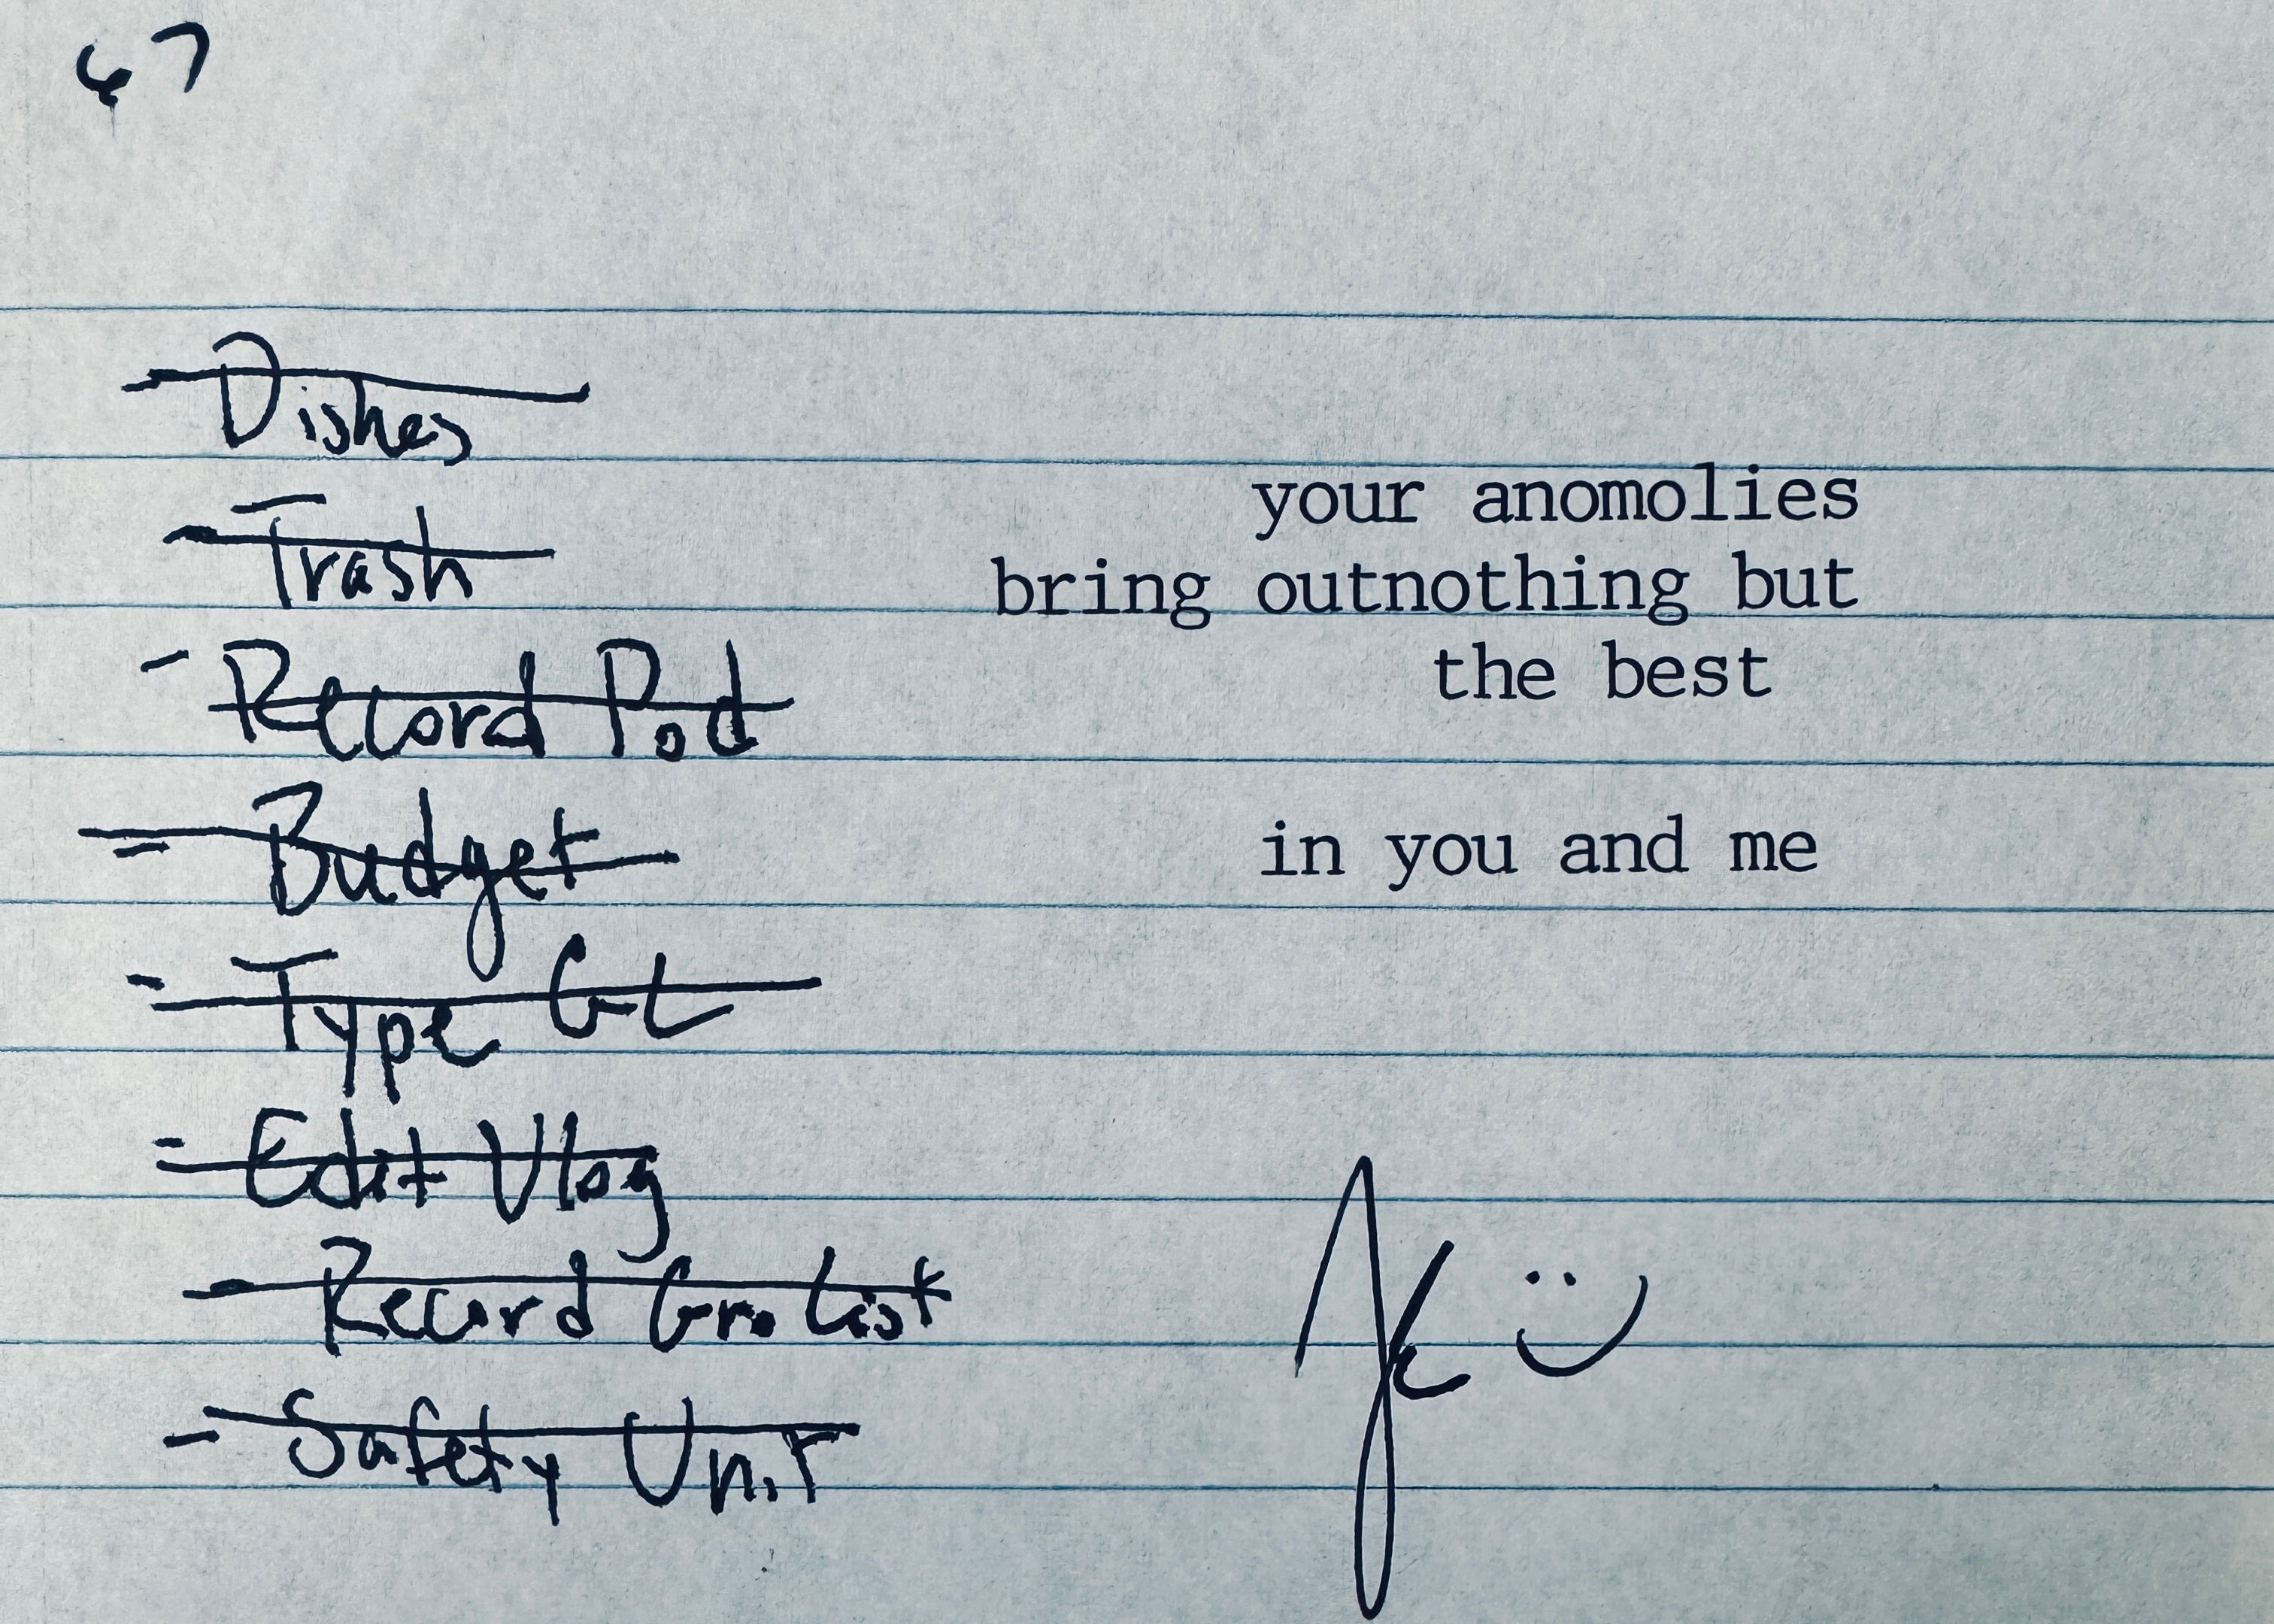 67
- Dishes
- Trash
- Record Pod
- Budget
- Type GL
- Edit Vlog
- Record Gro List
- Safety Unit
your anomolies
bring outnothing but
the best
in you and me